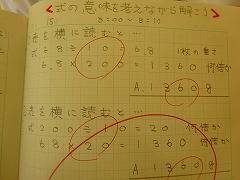 式の意味を考えながら解こう
8:00〜8:10
表を横に読むと…
式 68÷10=6.8 1枚の重さ
6.8×200=1360 何倍か
A. 1360g
表を横に読むと…
式 200÷10=20 何倍か
68×20=1360 何倍か
A. 1360g